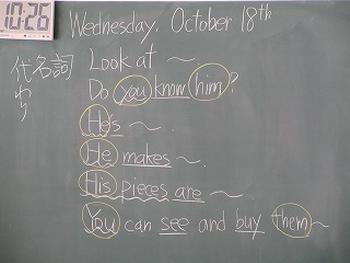 10:26
Wednesday, October 18th
代名詞
わり
Look at ~.
Do you know him?
He's ~.
He makes ~.
His pieces are ~
You can see and buy them~